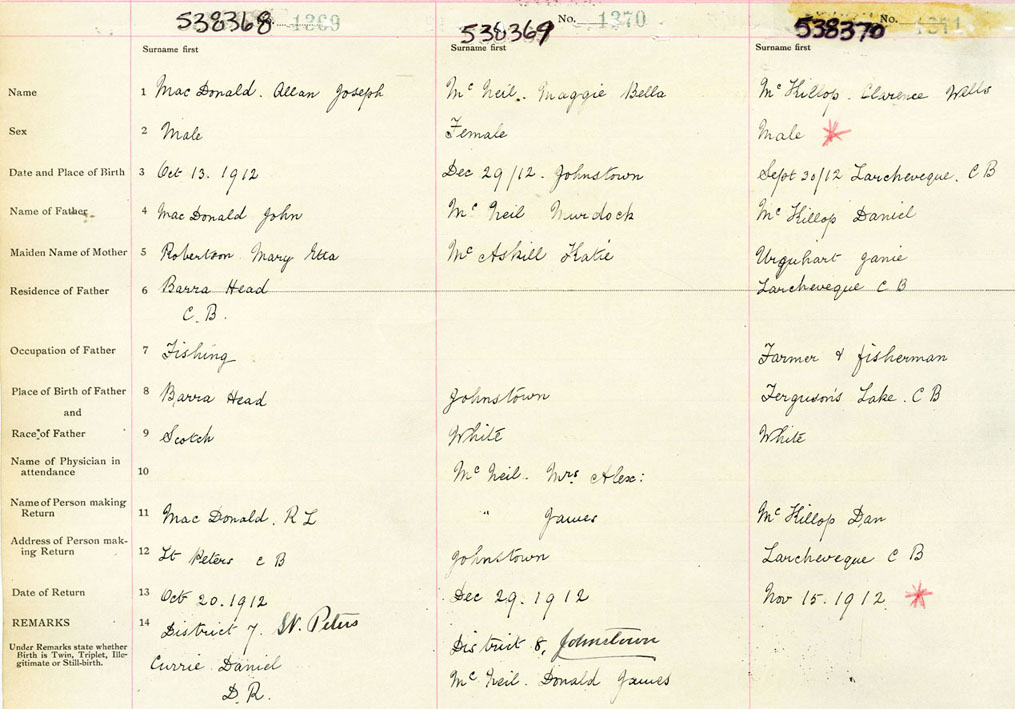 538368 1369 538369 No. 1370 538370 No. 1371
Surname first Surname first Surname first
Name 1 Mac Donald. Allan Joseph Mc Neil. Maggie Bella Mc Killop. Clarence Wells
Sex 2 Male Female Male
Date and Place of Birth 3 Oct 13. 1912 Dec 29/12. Johnstown Sept 30/12 Larcheveque. C B
Name of Father 4 Mac Donald John Mc Neil Murdock Mc Killop Daniel
Maiden Name of Mother 5 Robertson Mary Etta Mc Askill Katie Urquhart Janie
Residence of Father 6 Barra Head Larcheveque C B
C. B.
Occupation of Father 7 Fishing Farmer & fisherman
Place of Birth of Father 8 Barra Head Johnstown Ferguson's Lake. C B
and
Race of Father 9 Scotch White White
Name of Physician in
attendance 10 Mc Neil. Mrs Alex:
Name of Person making
Return 11 Mac Donald. R L " James Mc Killop Dan
Address of Person mak-
ing Return 12 St Peters C B Johnstown Larcheveque C B
Date of Return 13 Oct 20. 1912 Dec 29. 1912 Nov 15. 1912
REMARKS 14 District 7. St. Peters District 8, Johnstown
Under Remarks state whether
Birth is Twin, Triplet, Ille-
gitimate or Still-birth.
Currie Daniel Mc Neil. Donald James
D. R.